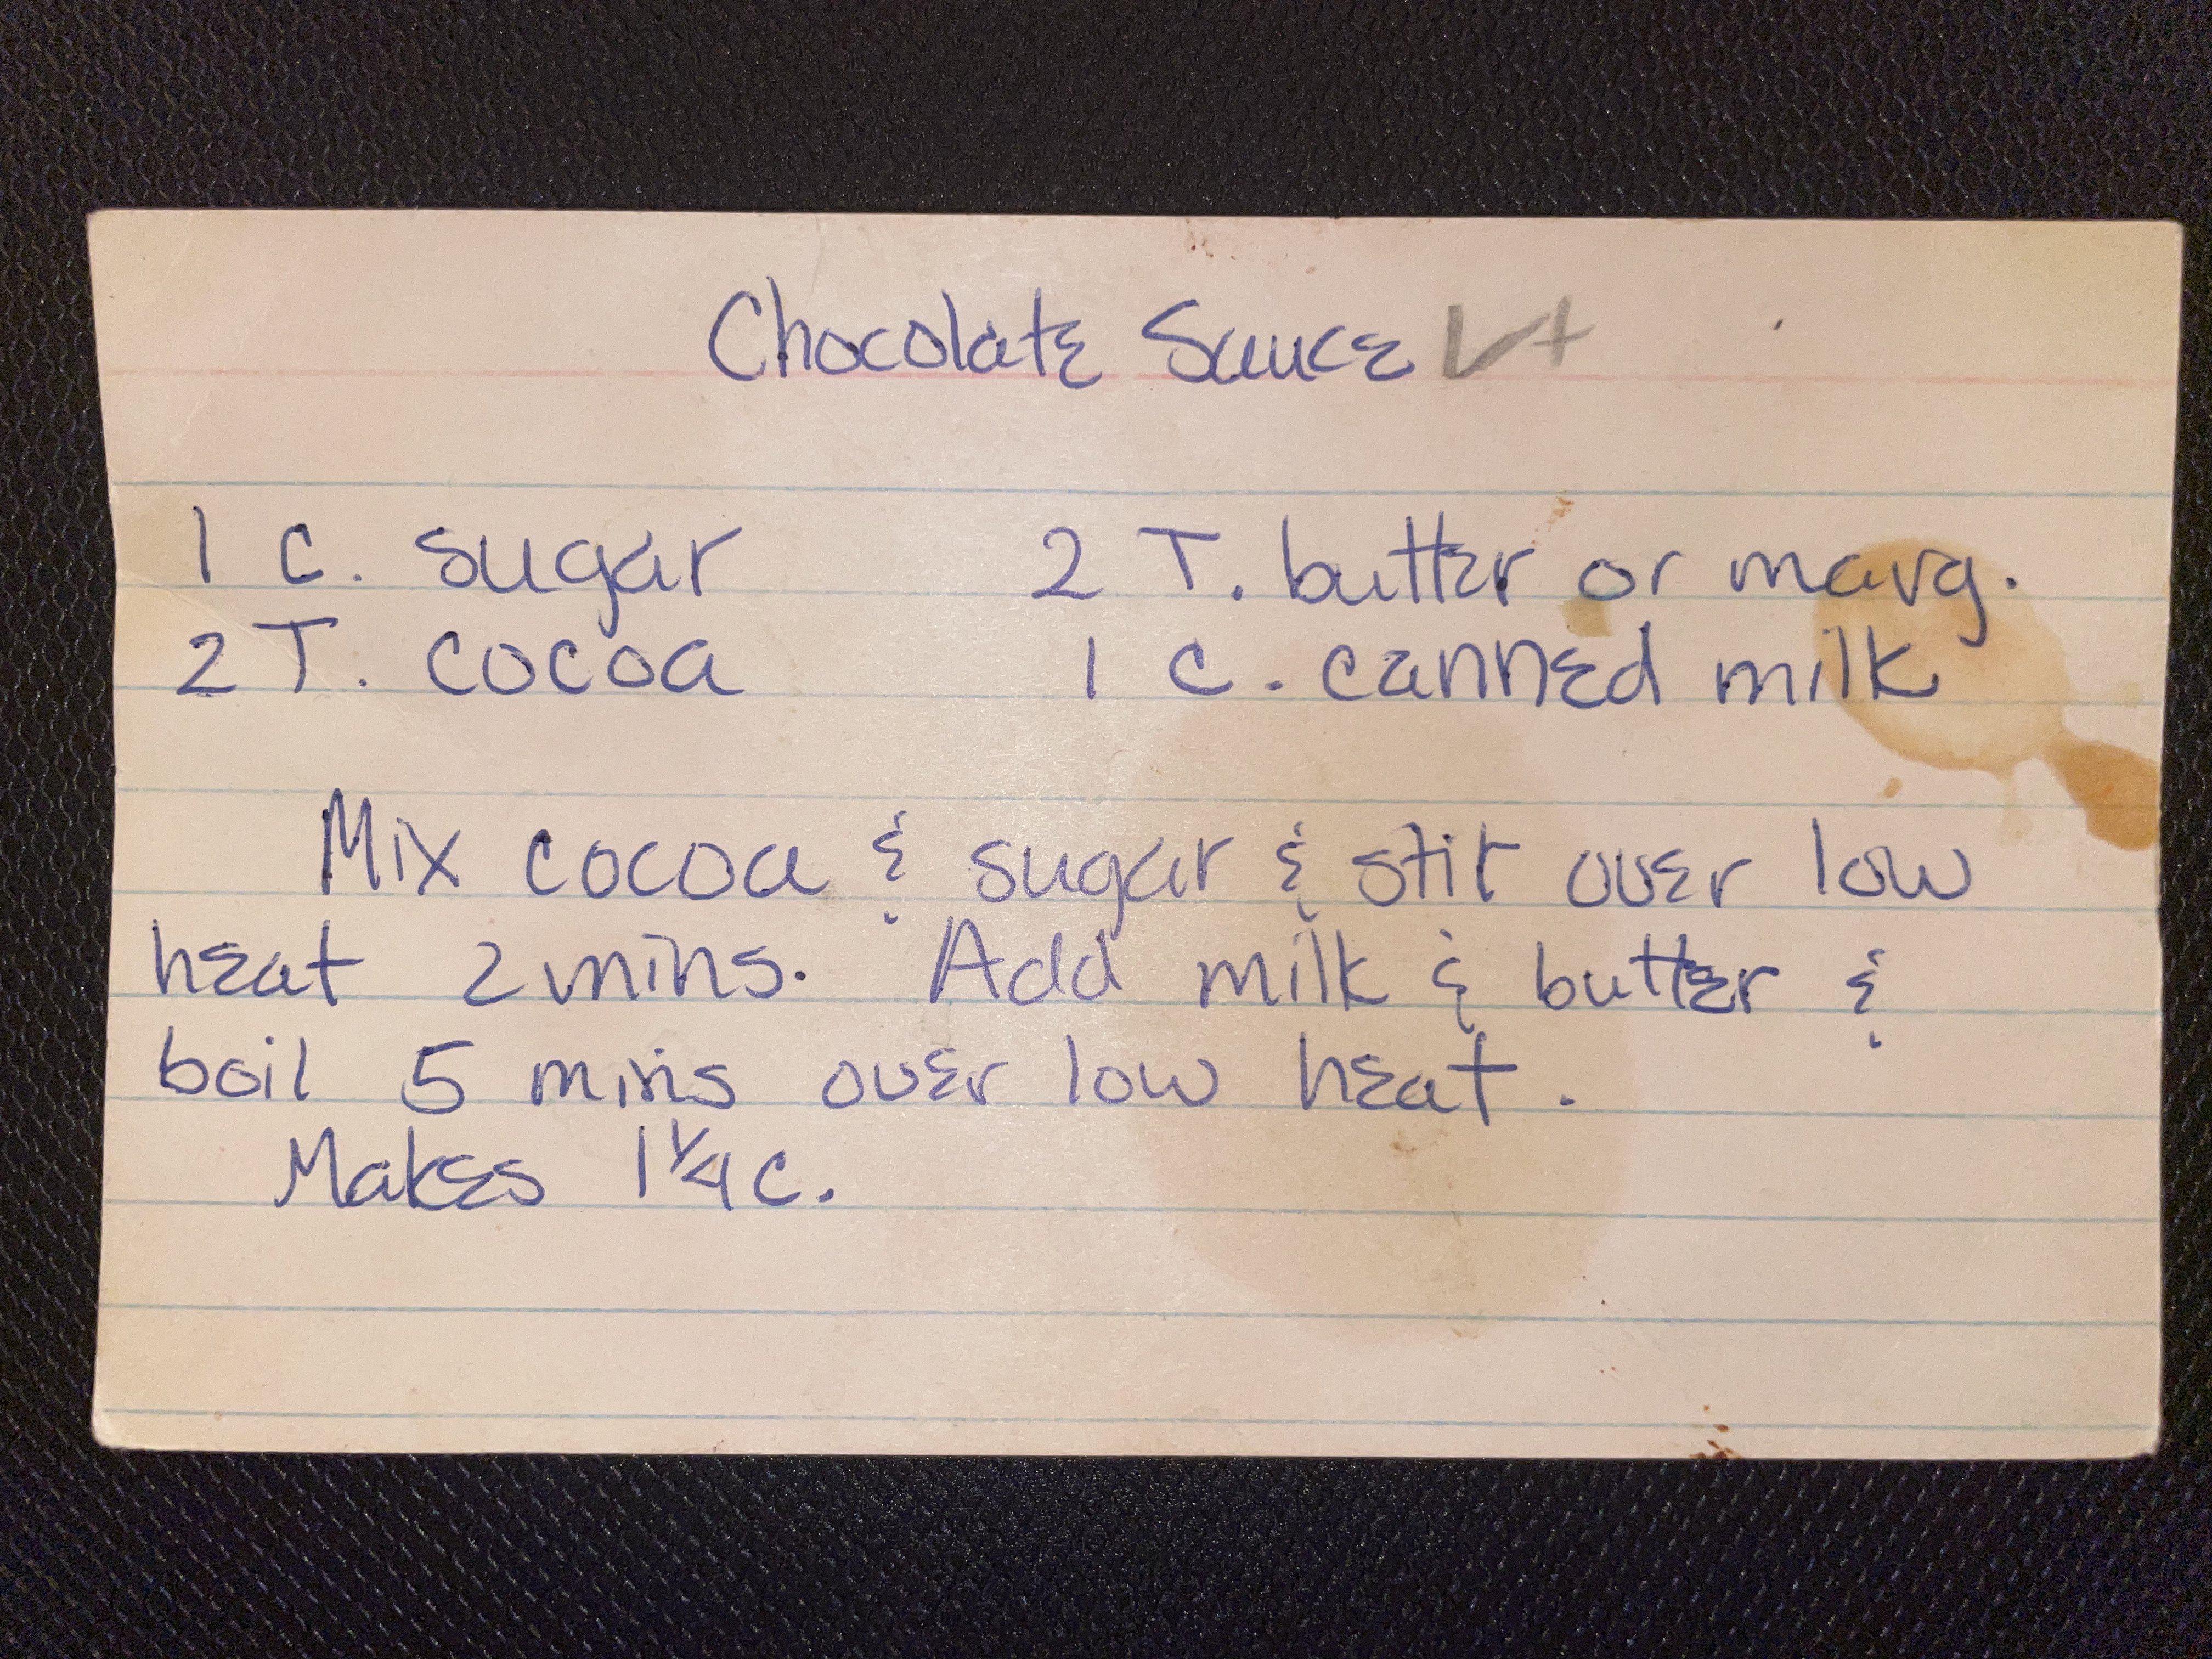 Chocolate Sauce ✓+
1 c. sugar 2 T. butter or marg.
2 T. cocoa 1 c. canned milk
Mix cocoa & sugar & stir over low
heat 2 mins. Add milk & butter &
boil 5 mins over low heat.
Makes 1 1/4 c.